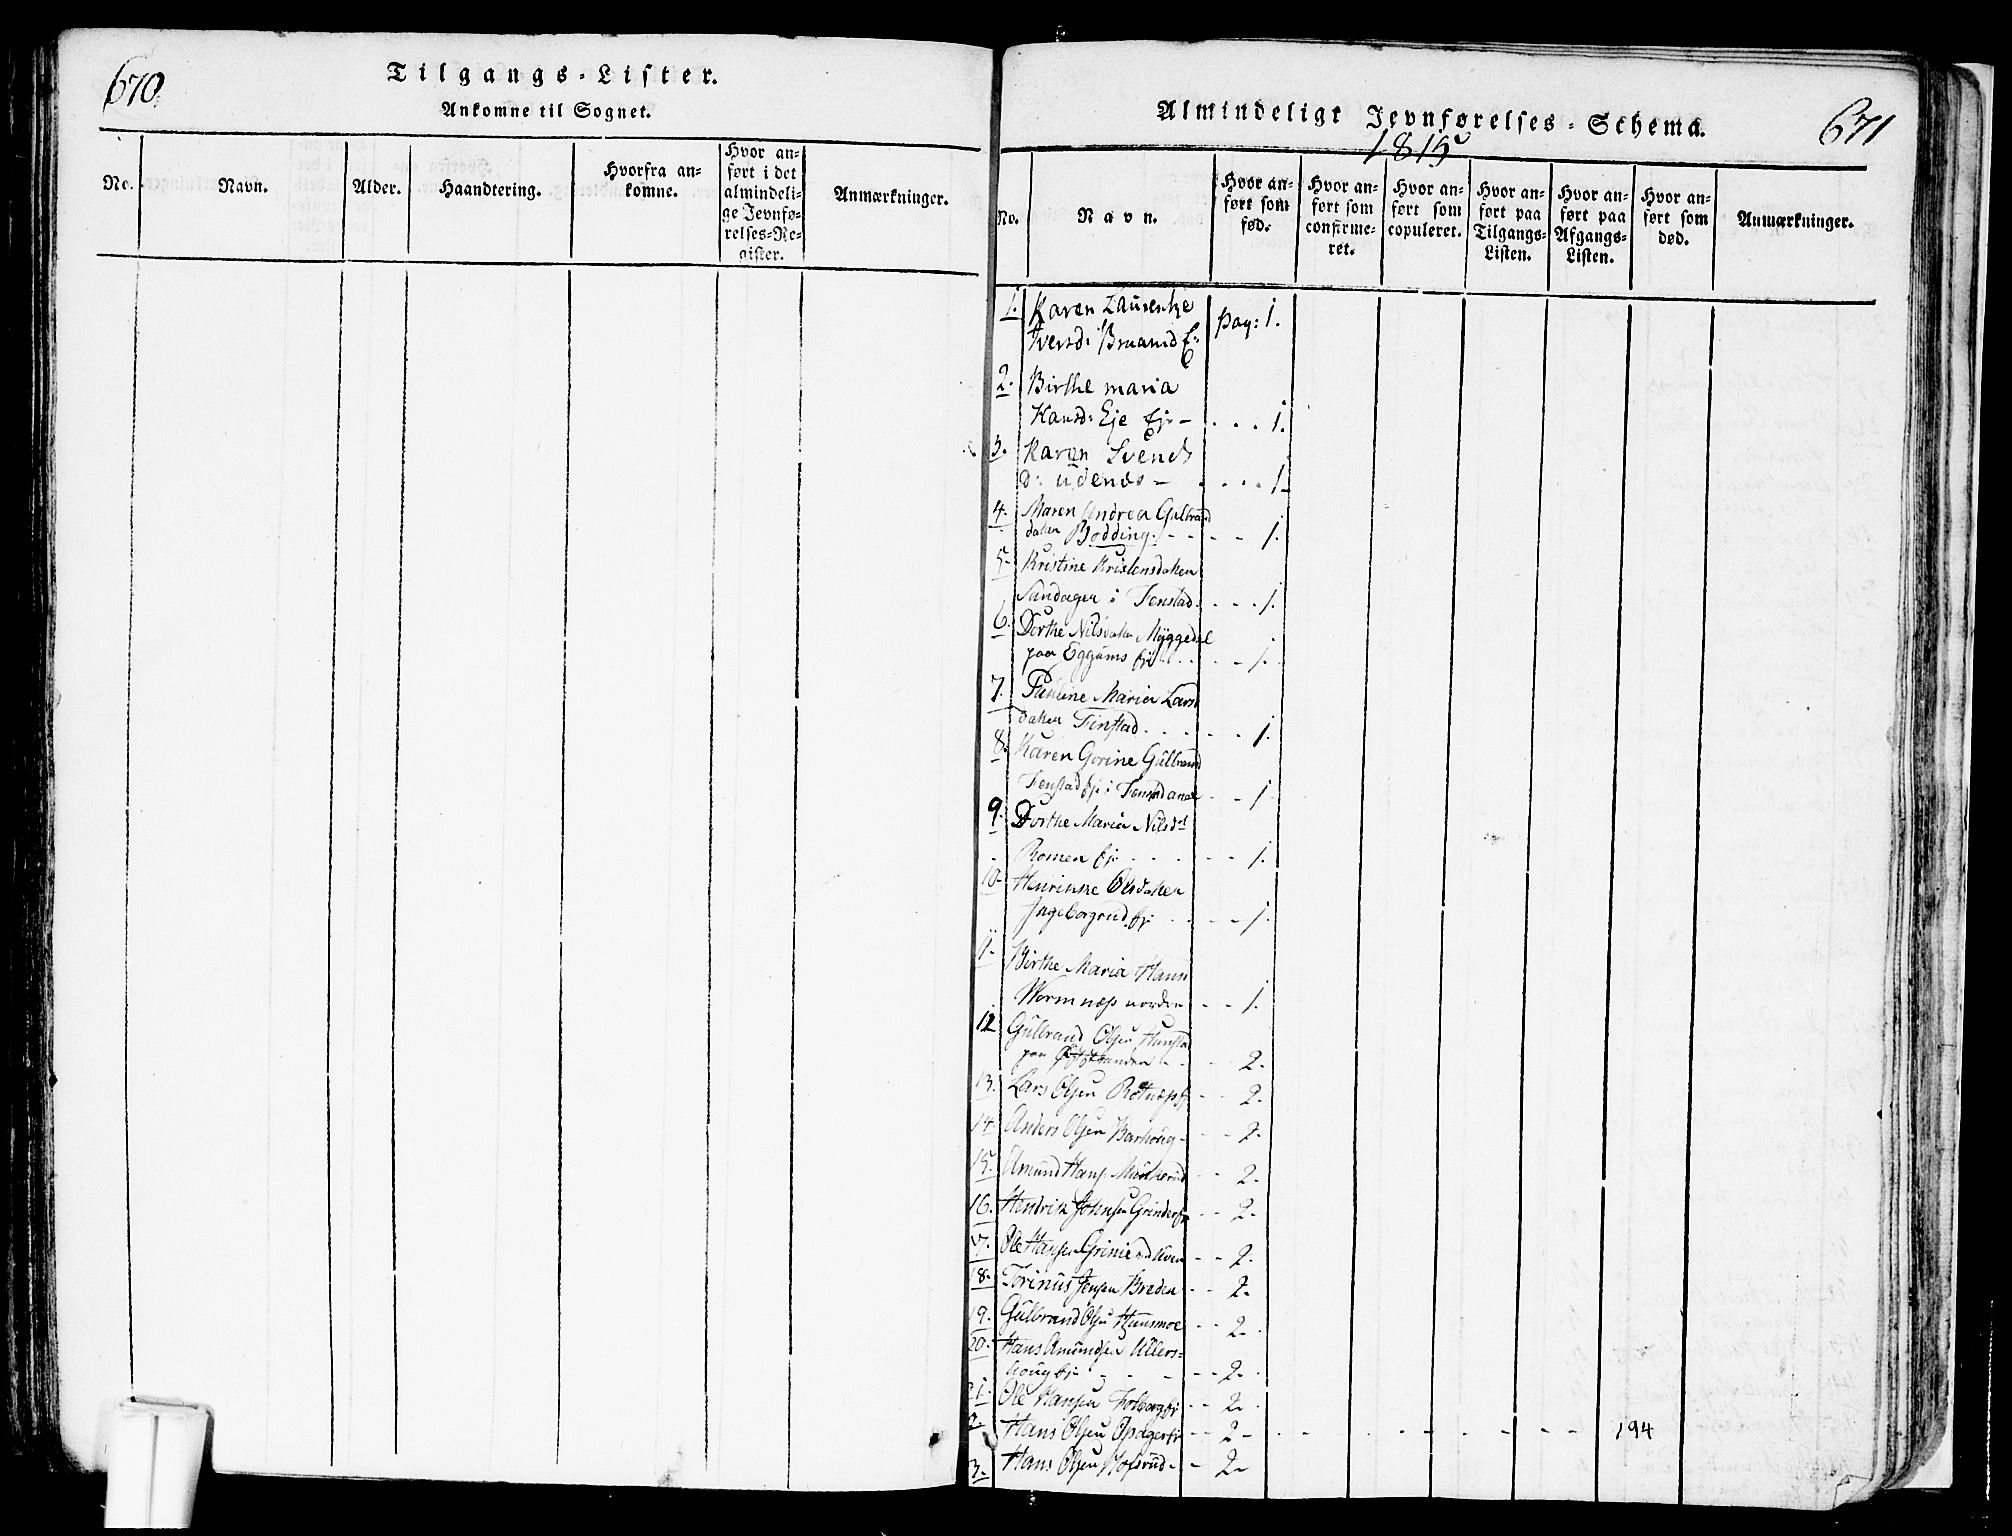 670
Tilgangs-Lister.
Ankomne til Sognet.
No.
Navn.
Alder.
Haandtering.
Hvorfra an-
komne.
Hvor an-
ført i det
almindeli-
ge Jevnfø-
relses-Re-
gister.
Anmærkninger.
Almindeligt Jevnførelses-Schema.
671
1815
No.
Navn.
Hvor an-
ført som
fød.
Hvor an-
ført som
confirme-
ret.
Hvor an-
ført som
copuleret.
Hvor an-
ført paa
Tilgangs-
Listen.
Hvor an-
ført paa
Afgangs-
Listen.
Hvor an-
ført som
død.
Anmærkninger.
1. Karen
Iversd: Braanid E: pag: 1.
2. Birthe maria
Hansd: Eje Ej: - . . . 1.
3. Karen Svends
d: udenes - . . . 1-
4. Maren Andrea Gulbrand
daater Bødding. - - - - 1.
5- Kristine Kristensdater
Sandager i Fenstad. . . . 1.
6. Dorthe Nilsdater Myggedal
paa Eggums Ej: . . . - 1.
7. Pauline Maria Lars
dater Finstad . . . . - 1.
8. Karen Gorine Gulbrand
Fenstad Ej: i - - 1
9. Dorthe Maria Nilsd
Romen Ej: - . . - - 1.
10- Olsdater
Ingeborgrud Ej: . . - - 1.
11- Birthe Maria Hans
Wormnæss nordre - - 1.
12 Gulbrand Olsen
paa . . - 2.
13. Lars Olsen Rotnæss Ej: - - 2.
14. Anders Olsen Barhoug - - - 2.
15. Amund Hans - - 2.
16. Hendrik Johnsen Grinder Ej: - - 2.
17. Ole Hansen - - 2.
18. Torinus Jensen Breden - - 2.
19. Gulbrand Olsen Hansmoe - - 2.
20. Hans Amundsen Ullers-
houg Ej: - - - - - 2.
21. Ole Hansen Folberg Ej: - - 2.
2. Hans Olsen Opager Ej: - - 2 - - - - - - - - 194
3. Hans Olsen Hofsrud - - 2-